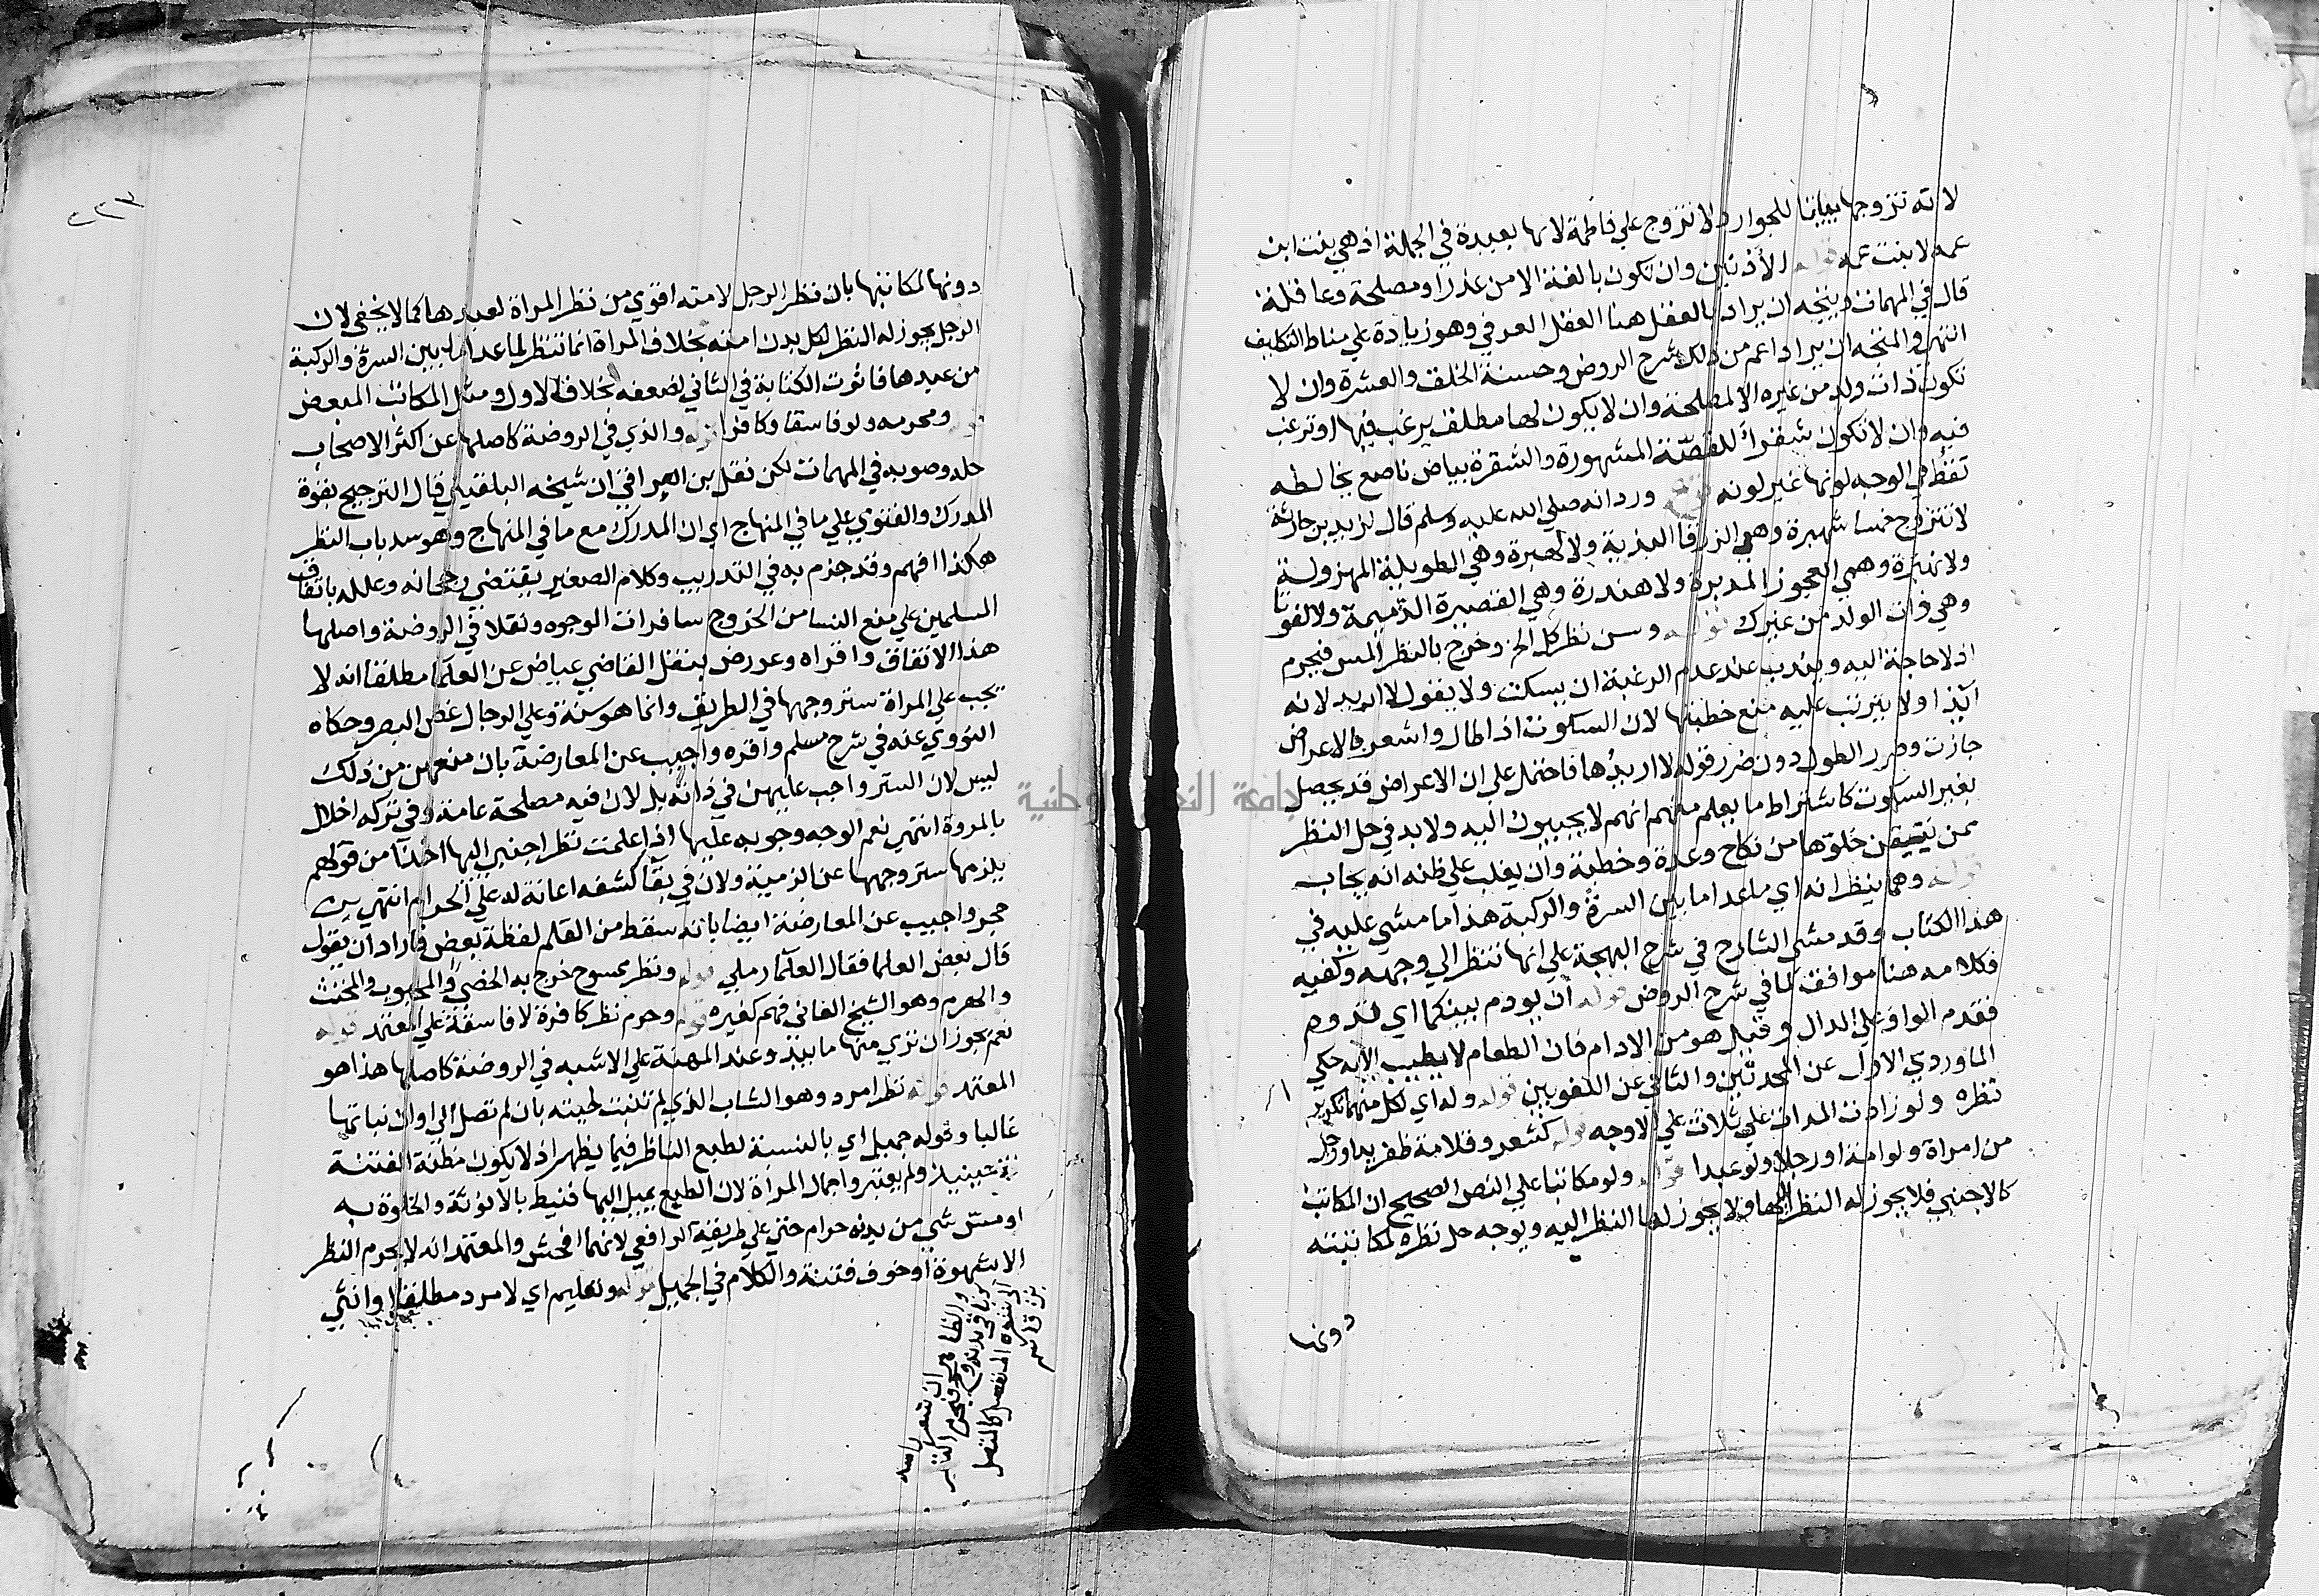 لانه تزوجها بيانا للجواز ولا تزوج علي فاطمة لانها بعيدة في الجملة اذ هي بنت ابن
عمه لا بنت عمه قوله الاذنين وان تكون بالغة الا من عذر او مصلحة وعاقلة
قال في المهمات ويتجه ان يراد بالعقل هنا العقل العرفي وهو زيادة علي مناط التكليف
انتهى والمتجه ان يراد اعم من ذلك شرح الروض وحسنة الخلق والعشرة وان لا
تكون ذات ولد من غيره الا لمصلحة وان لا يكون لها مطلق يرغب فيها او ترغب
فيه وان لا تكون شقراء للقصة المشهورة والشقرة بياض ناصع يخالطه
نقط في الوجه لونها غير لونه ورد انه صلي الله عليه وسلم قال لزيد بن حارثة
لا تتزوج خمسا شهبرة وهي الزرقا البذية ولا لهبرة وهي الطويلة المهزولة
ولا نهبرة وهي العجوز المدبرة ولا هندرة وهي القصيرة الذميمة ولا لفوتا
وهي ذات الولد من غيرك قوله وسن نظر كل الخ وخرج بالنظر المس فيحرم
اذ لا حاجة اليه ويندب عند عدم الرغبة ان يسكت ولا يقول لا اريد لانه
ايذا ولا يترتب عليه منع خطبتها لان السكوت اذا طال واشعر بالاعراض
جازت وضرر الطول دون ضرر قوله لا اريدها فاحتمل علي ان الاعراض قد يحصل
بغير السكوت كاشتراط ما يعلم منهم انهم لا يجيبون اليه ولا بد في حل النظر
ممن تيقن خلوها من نكاح وعدة وخطبة وان يغلب علي ظنه انه يجاب
قوله وهما ينظرانه اي ما عدا ما بين السرة والركبة هذا ما مشي عليه في
هذا الكتاب وقد مشى الشارح في شرح البهجة علي انها تنظر الي وجهه وكفيه
فكلامه هنا موافق لما في شرح الروض قوله ان يودم بينكما اي تدوم
فقدم الواو علي الدال وقيل هو من الادام فان الطعام لا يطيب الا به حكي
الماوردي الاول عن المحدثين والثاني عن اللغويين قوله وله اي لكل منهما تكرير
نظره ولو زادت المرات علي ثلاث علي الاوجه قوله كشعر وقلامة ظفر يد او رجل
من امراة ولو امة او رجلا ولو عبدا قوله ولو مكاتبا علي النص الصحيح ان المكاتب
كالاجنبي فلا يجوز له النظر اليها ولا يجوز لها النظر اليه ويوجه حل نظره لمكاتبته
دونها
٢٢٣
دونها لمكاتبها بان نظر الرجل لامته اقوي من نظر المراة لعبدها كما لا يخفي لان
الرجل يجوز له النظر لكل بدن امته بخلاف المراة انما تنظر لما عدا ما بين السرة والركبة
من عبدها فاثرت الكتابة في الثاني لضعفه بخلاف الاول ومثل المكاتب المبعض
قوله ومحرمه ولو فاسقا وكافرا قوله والذي في الروضة كاصلها عن اكثر الاصحاب
حله وصوبه في المهمات لكن نقل بن العراقي ان شيخه البلقيني قال الترجيح بقوة
المدرك والفتوي علي ما في المنهاج اي ان المدرك مع ما في المنهاج وهو سد باب النظر
هكذا افهم وقد جزم به في التدريب وكلام الصغير يقتضي رجحانه وعلله باتفاق
المسلمين علي منع النسا من الخروج سافرات الوجوه ونقلا في الروضة واصلها
هذا الاتفاق واقراه وعورض بنقل القاضي عياض عن العلما مطلقا انه لا
يجب علي المراة ستر وجهها في الطريق وانما هو سنة وعلي الرجال غض البصر وحكاه
النووي عنه في شرح مسلم واقره واجيب عن المعارضة بان منعهن من ذلك
ليس لان الستر واجب عليهن في ذاته بل لان فيه مصلحة عامة وفي تركه اخلال
بالمروة انتهي نعم الوجه وجوبه عليها اذا علمت نظر اجنبي اليها اخذا من قولهم
يلزمها ستر وجهها عن الذمية ولان في بقا كشفه اعانة له علي الحرام انتهي بن
حجر واجيب عن المعارضة ايضا بانه سقط من القلم لفظة بعض فاراد ان يقول
قال بعض العلما فقال العلما رملي قوله ونظر ممسوح خرج به الخصي والمجبوب والمخنث
والهرم وهو الشيخ الفاني فهم كغيره قوله وحرم نظر كافرة لا فاسقة علي المعتمد قوله
نعم يجوز ان تري منها ما يبدو عند المهنة علي الاشبه في الروضة كاصلها هذا هو
المعتمد قوله نظر امرد وهو الشاب الذي لم تنبت لحيته بان لم تصل الي اوان نباتها
غالبا وقوله جميل اي بالنسبة لطبع الناظر فيما يظهر اذ لا يكون مظنة الفتنة
حينيذ ولم يعتبروا جمال المراة لان الطبع يميل اليها فنيط بالانوثة والخلوة به
او مس شي من بدنه حرام حتي علي طريقة الرافعي لانهما افحش والمعتمد انه لا يحرم النظر
الا بشهوة او خوف فتنة والكلام في الجميل قوله وتعليم اي لامرد مطلقا وانثي
والظاهر ان شعر راسه
بن قاسم